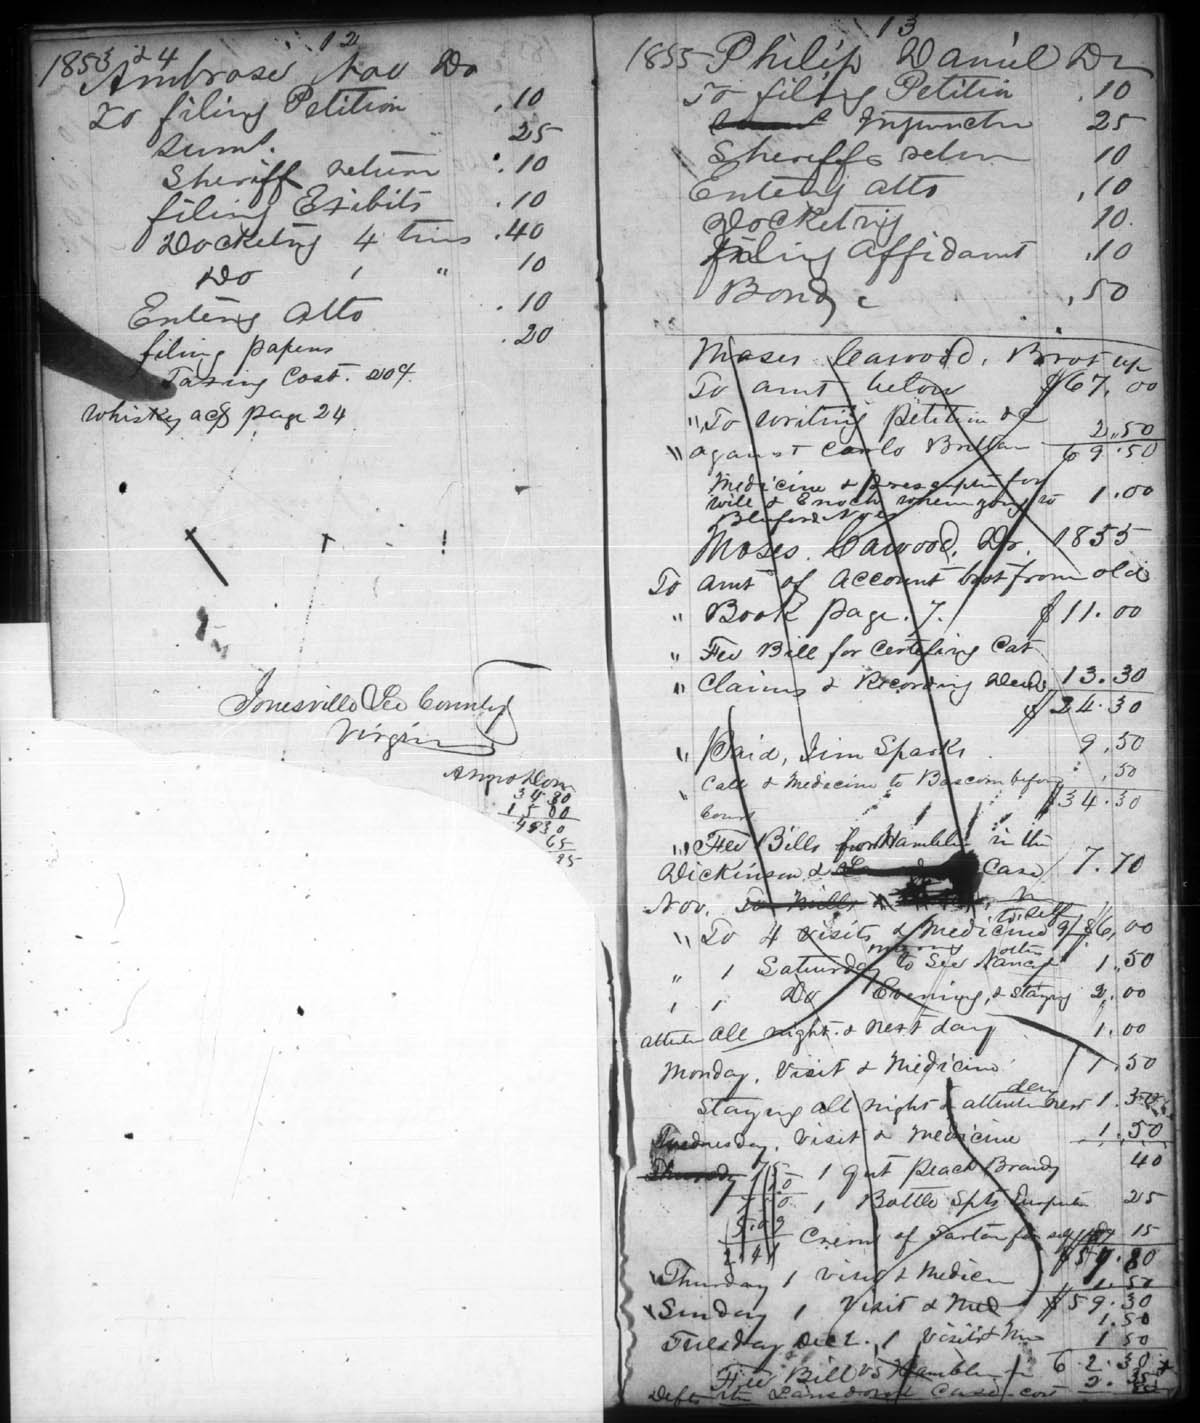 12
1853 & 4
Ambrose Dr
To filing Petition .10
Sum. 25
Sheriff return .10
filing Exibits .10
Docketing 4 tims .40
Do 1 " 10
Entering atto .10
filing papers .20
Taxing Cost. 204
Whiskey page 24
Jonesville Lee County
Virginia
34 80
65
13
1855 Philip Daniel Dr
To filing Petition .10
Injunctn 25
Sheriffs return 10
Entering atto .10
Docketing 10.
filing Affidavit .10
Bond .50
Moses Cawood. Brot up
To amt below $67.00
" To writing petition &c 2.50
" against Carlo 69.50
Medicine & prescription for
will & Enoch when going to 1.00
Moses Cawood, Dr. 1855
To amt of account brot from old
" Book page. 7. $11.00
" Fee Bill for Certifing
" Claims & Recording Deeds 13.30
$24.30
" Paid, Jim Sparks 9.50
" Call & Medicine to Bascom before .50
Court $34.30
" Fee Bills from Hamblin in the
Dickinson & Case 7.70
Nov.
to self
" To 4 visits & Medicine 6,00
" 1 Saturday to See Nancy 1.50
" 1 Do Evening, & staying 2.00
all night & next day 1.00
Monday, Visit & Medicine 1.50
day
Staying all night & next 1.50
Visit & Medicine 1.50
Thursday 1 qut Peach Brandy 40
1 Bottle Spts 25
Cream of Tartar for self 15
Thursday 1 visit & Medicin 1.50
Sunday 1 Visit & Med $59.30
1.50
Tuesday Dec 1 visit & 1 50
62.30
Fee Bill vs Hamblin
Case cost